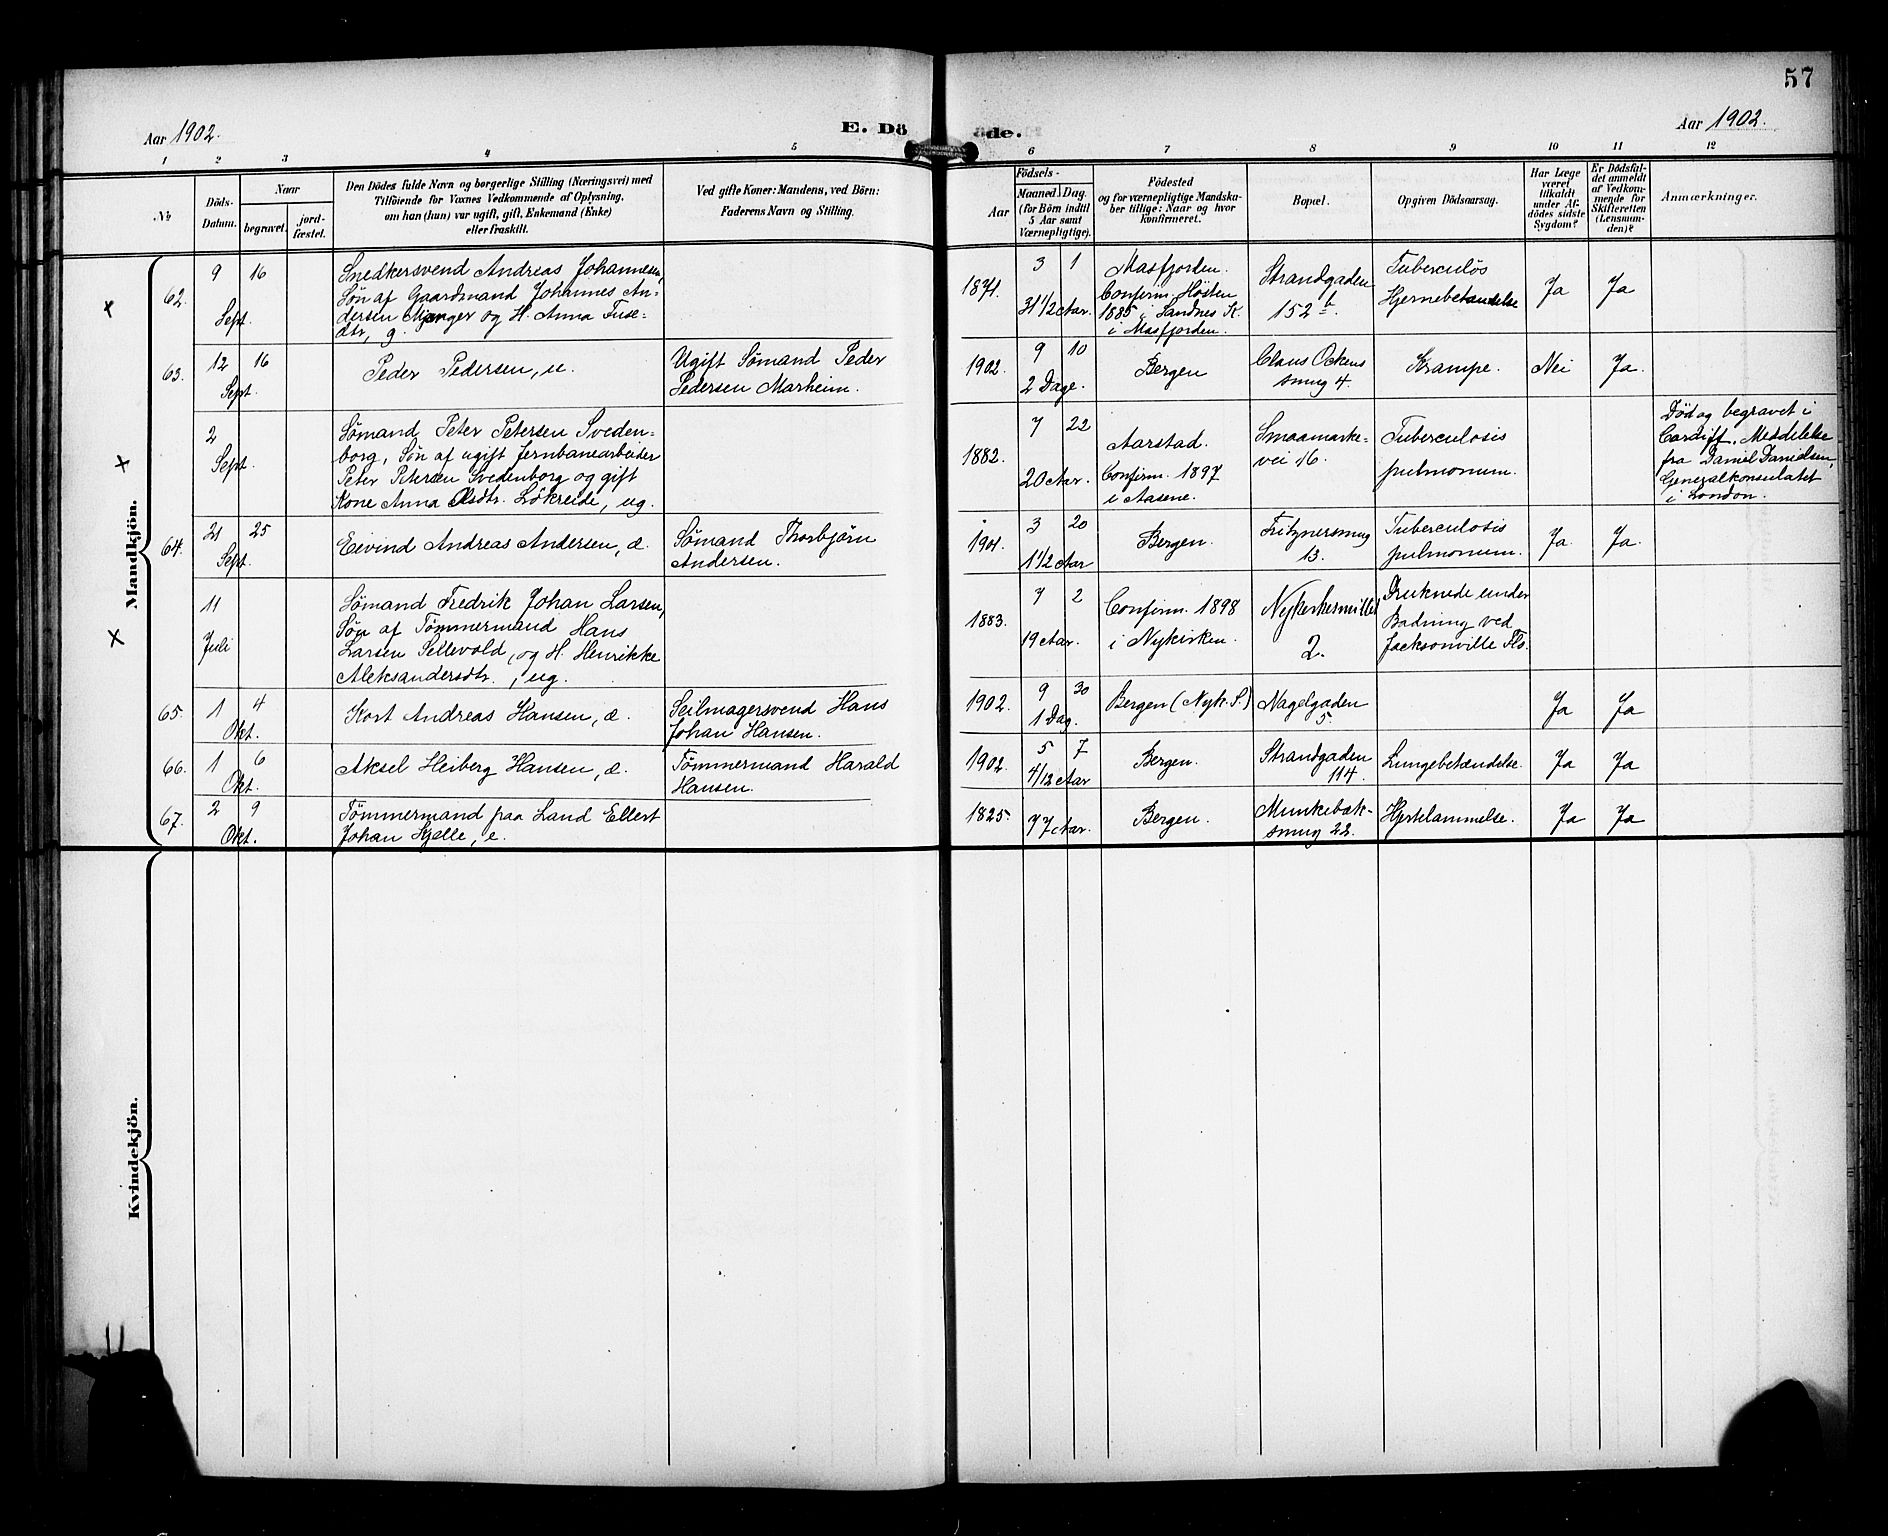 57
Aar 1902.
E. Dö de.
Aar 1902.
1 2 3 4 5 6 7 8 9 10 11 12
№
Döds-
Datum.
Naar
begravet.
jord-
fæstet.
Den Dödes fulde Navn og borgerlige Stilling (Næringsvei) med
Tilföiende for Voxnes Vedkommende af Oplysning,
om han (hun) var ugift, gift, Enkemand (Enke)
eller fraskilt.
Ved gifte Koner: Mandens, ved Börn:
Faderens Navn og Stilling.
Födsels-
Aar
Maaned Dag.
(for Börn indtil
5 Aar samt
Værnepligtige).
Födested
og for værnepligtige Mandska-
ber tillige: Naar og hvor
konfirmeret.
Bopæl.
Opgiven Dödsaarsag.
Har Læge
været
tilkaldt
under Af-
dödes sidste
Sygdom?
Er Dödsfal-
det anmeldt
af Vedkom-
mende for
Skifteretten
(Lensman-
den)?
Anmærkninger.
Mandkjön.
62.
9 16
Sept.
Snedkersvend Andreas Johannesen,
Søn af Gaardmand Johannes An-
dersen Manger og H. Anna Tuse-
dtr, g.
1871.
3 1
31 1/2 Aar.
Masfjorden.
Confirm. Høsten
1885 i Sandnes K.
i Masfjorden.
Strandgaden
152 b.
Tuberculös
Hjernebetændelse
Ja Ja
63.
12 16
Sept.
Peder Pedersen, u.
Ugift Sømand Peder
Pedersen Marheim.
1902.
9 10
2 Dage.
Bergen
Claus Ockens
smug 4.
Krampe.
Nei Ja.
2
Sept.
Sømand Peter Petersen Sveden-
borg, Søn af ugift Jernbanearbeider
Peter Petersen Svedenborg og gift
Kone Anna Olsdtr. Løkreide, ug.
1882.
7 22
20 Aar.
Aarstad.
Confirm. 1897
i Aasene.
Smaamarke-
vei 16.
Tuberculosis
pulmonum.
Død og begravet i
Cardiff. Meddelelse
fra Daniel Danielsen,
Generalkonsulatet
i London.
64.
21 25
Sept.
Eivind Andreas Andersen, æ.
Sømand Thorbjørn
Andersen.
1901.
3 20
1 1/2 Aar
Bergen.
Fritznersmug
13.
Tuberculosis
pulmonum.
Ja. Ja.
11
Juli
Sømand Fredrik Johan Larsen,
Søn af Tømmermand Hans
Larsen Sellevold, og H. Henrikke
Aleksandersdtr., ug.
1883.
7 2
19 Aar.
Confirm. 1898
i Nykirken.
Nykirkesmuttet
2.
Druknede under
Badning ved
Jacksonville Flo.
65.
1 4
Okt.
Kort Andreas Hansen, æ.
Seilmagersvend Hans
Johan Hansen.
1902.
9 30
1 Dag.
Bergen (Nyk. S.)
Nagelgaden
5
Ja Ja
66.
1 6
Okt.
Aksel Heiberg Hansen, æ.
Tømmermand Harald
Hansen.
1902.
5 7
4/12 Aar
Bergen.
Strandgaden
114.
Lungebetændelse.
Ja Ja
67.
2 9
Okt.
Tømmermand paa Land Ellert
Johan Kjelle, e.
1825.
77 Aar.
Bergen.
Munkebæk-
smug 22.
Hjertelammelse.
Ja Ja
Kvindekjön.